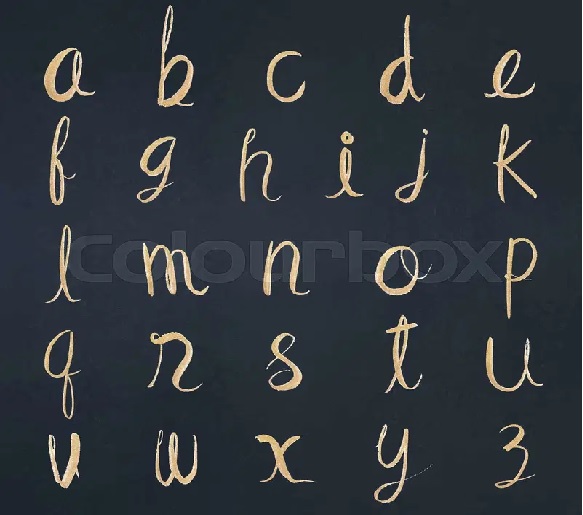 a b c d e
f g h i j k
l m n o p
q r s t u
v w x y z
colourbox